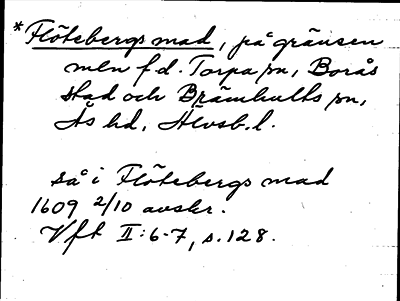 *Flötebergs mad, på gränsen
mln f.d. Torpa sn, Borås
stad och Brämhults sn,
Ås hd, Älvsb. l.
så i Flötebergs mad
1609 2/10 avskr.
Vft II:6-7, s. 128.